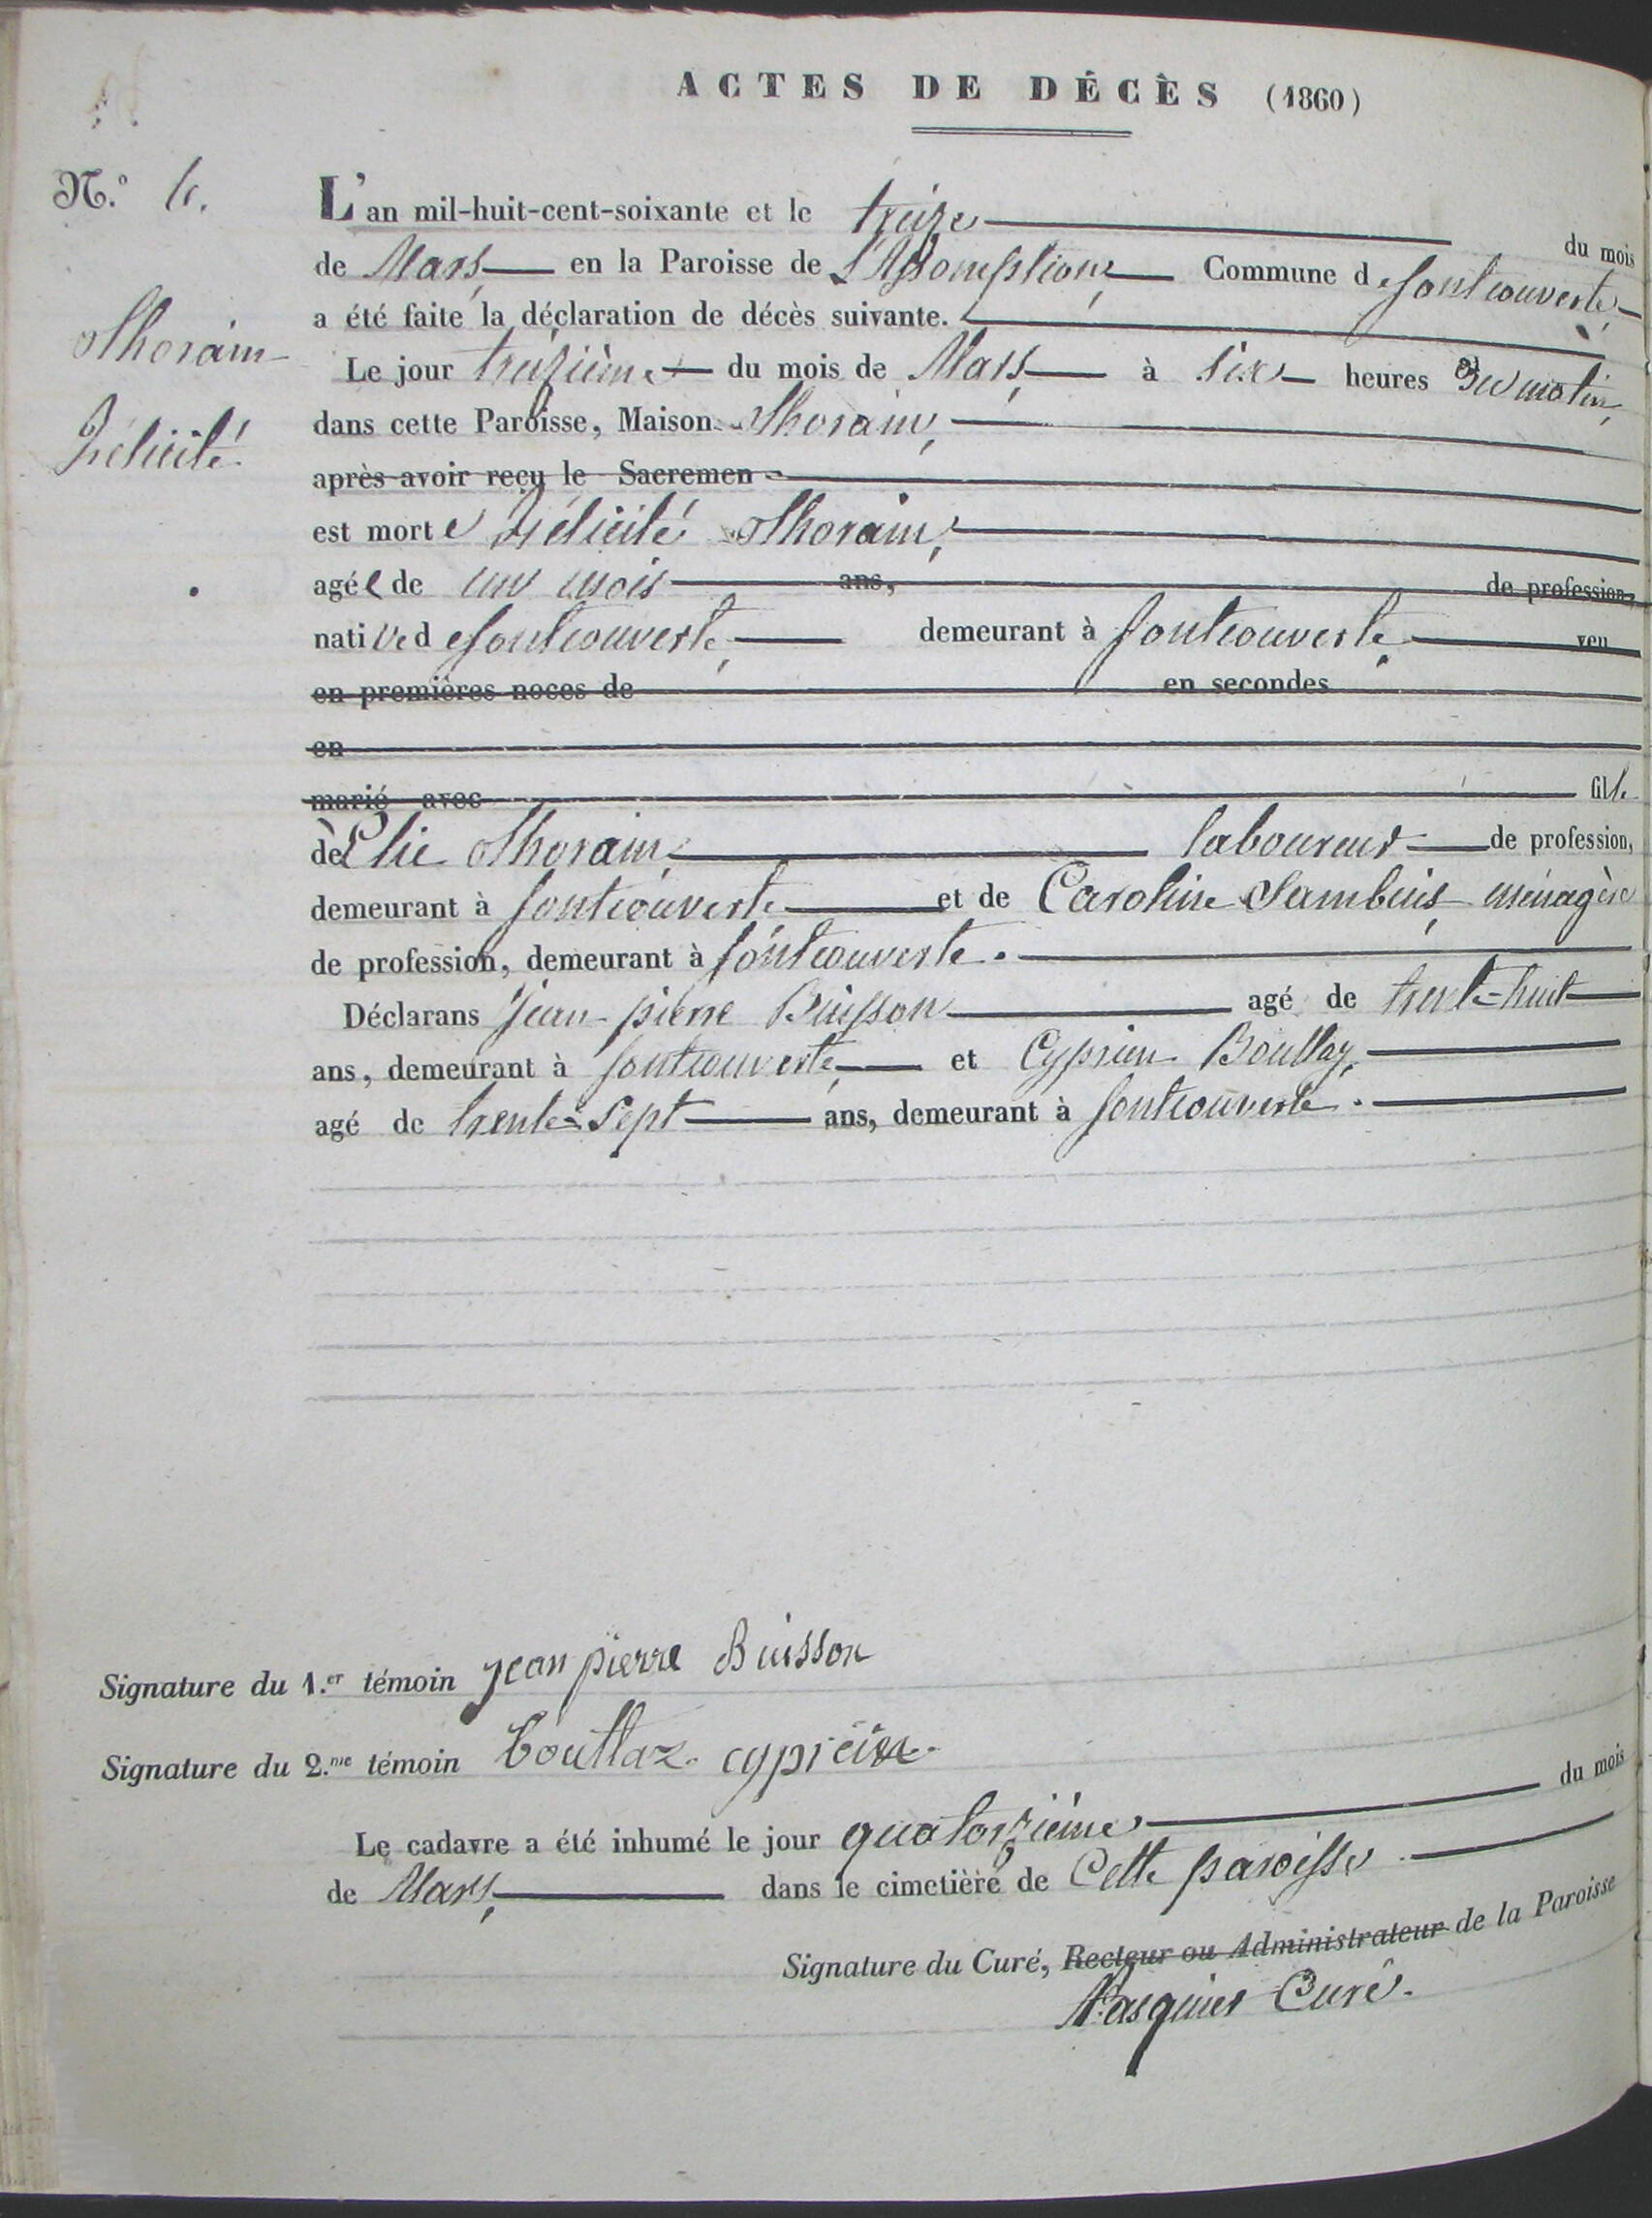 ACTES DE DÉCÈS (1860)
N.º 6.
L'an mil-huit-cent-soixante et le treize du mois
de Mars, en la Paroisse de L'Assomption, Commune de fontcouverte,
a été faite la déclaration de décès suivante.
Thorain
Félicité
Le jour treizième du mois de Mars, à six heures du matin,
dans cette Paroisse, Maison Thorain,
après avoir reçu le Sacremen
est morte Félicité Thorain,
agée de un mois ans, de profession,
native de fontcouverte, demeurant à fontcouverte veu
en premières noces de en secondes
en
marié avec fille
de Elie Thorain, laboureur de profession,
demeurant à fontcouverte et de Caroline Sambuis, ménagère
de profession, demeurant à fontcouverte.
Déclarans Jean-pierre Buisson agé de trente-huit
ans, demeurant à fontcouverte, et Cyprien Boullaz,
agé de trente-sept ans, demeurant à fontcouverte.
Signature du 1.er témoin jean pierre Buisson
Signature du 2.me témoin boullaz cyprien
Le cadavre a été inhumé le jour quatorzième du mois
de Mars, dans le cimetière de Cette paroisse
Signature du Curé, Recteur ou Administrateur de la Paroisse
Pasquier Curé.